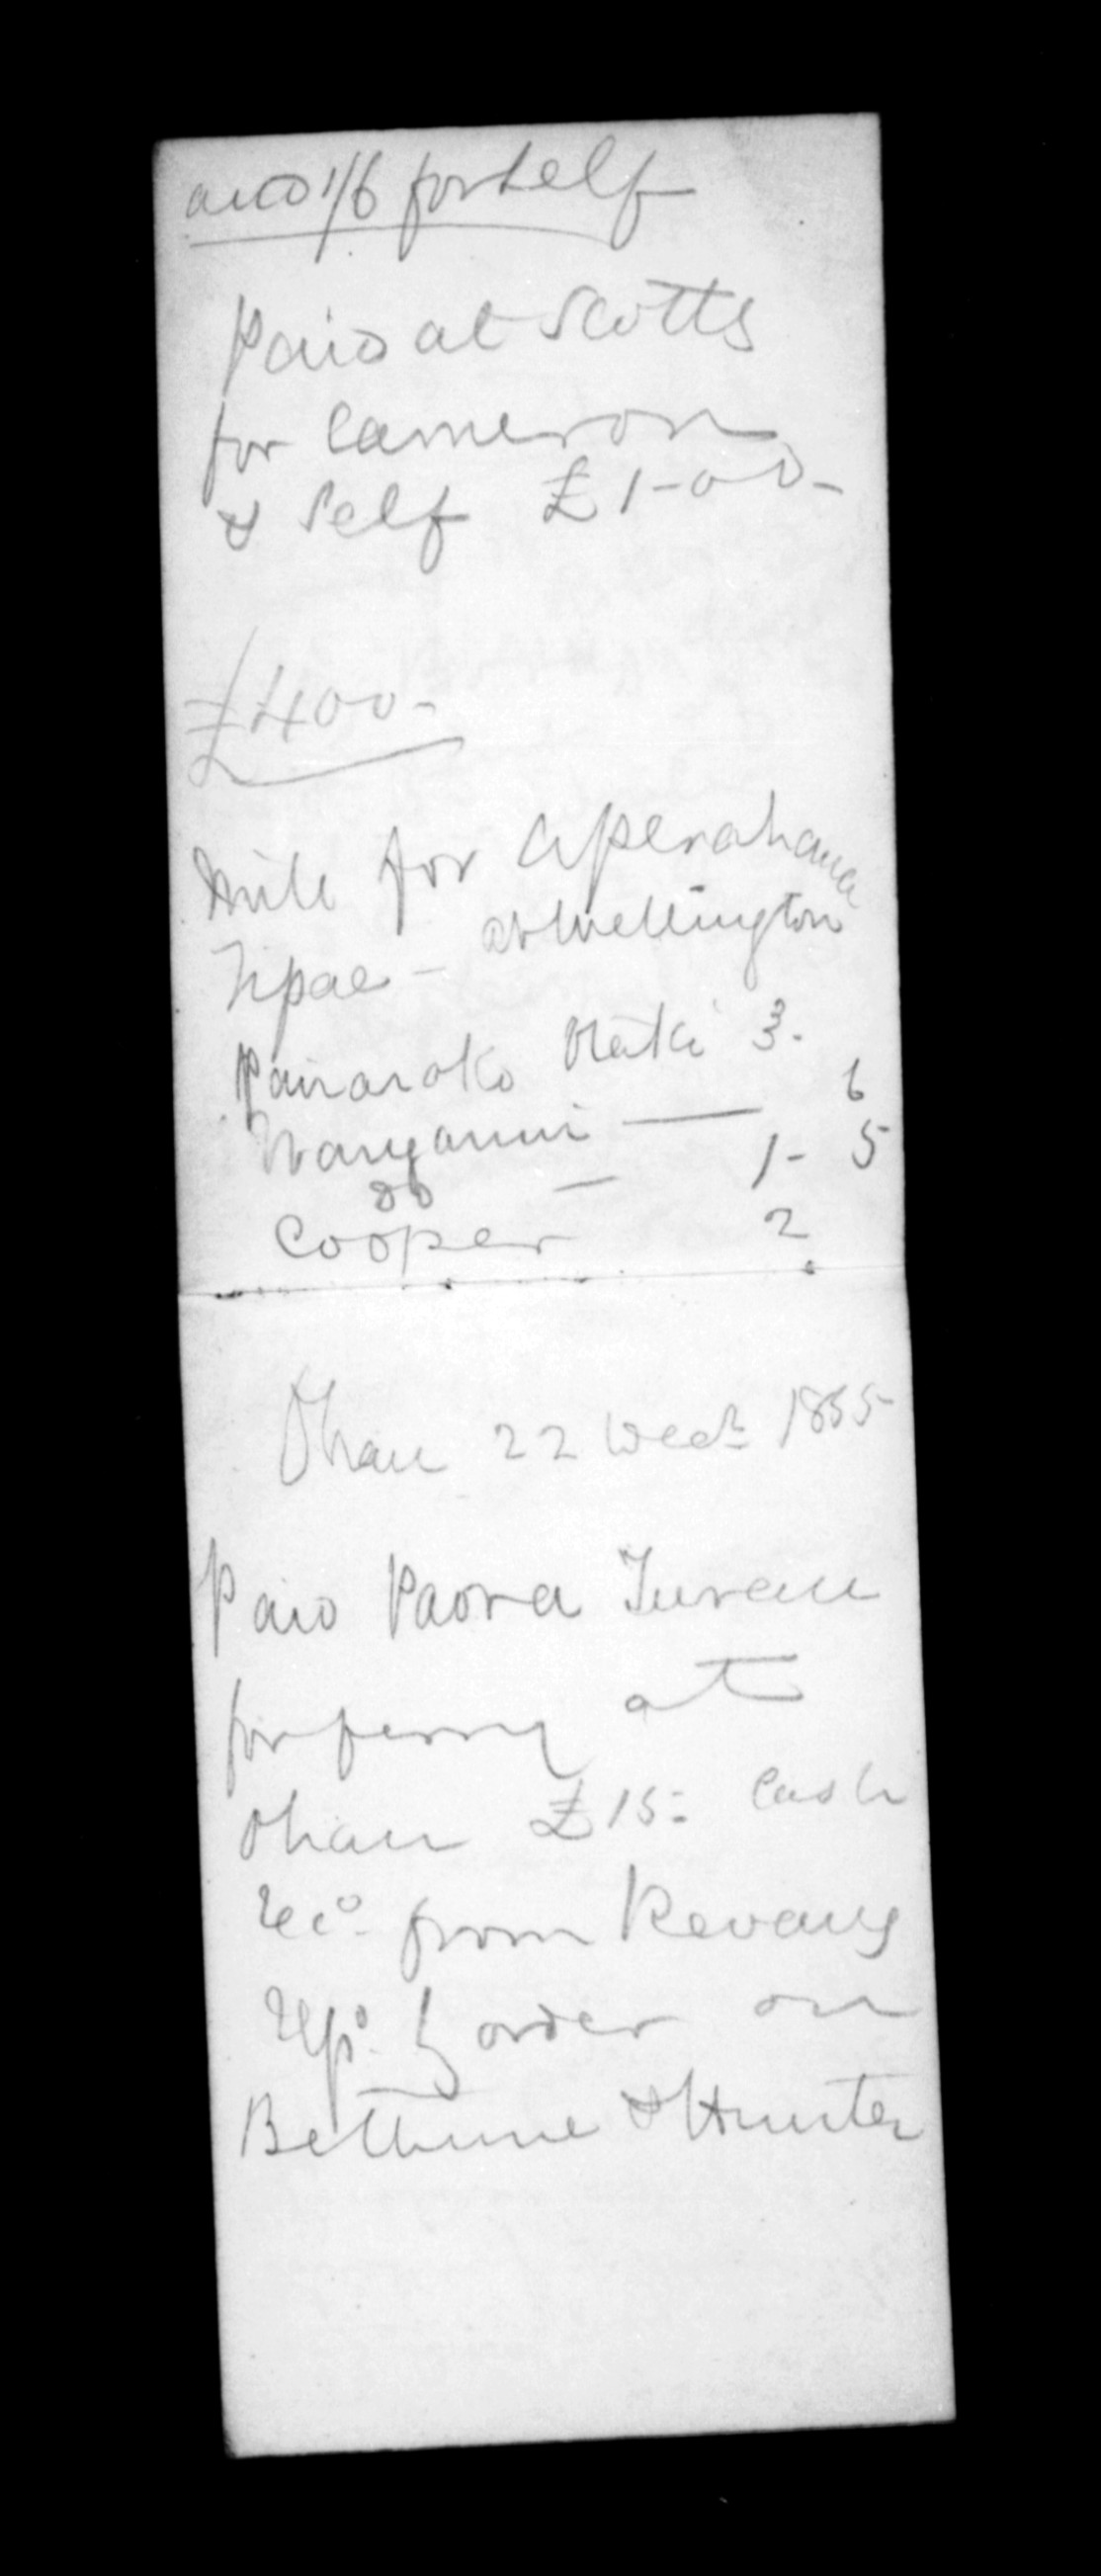 and 1/6 for self
Paid at Scotts
for Cameron
& Self £1-0-0-
£400-
for Aperahama
Tipae - at Wellington
Otaki 3.
Wanganui — 6
do — 1- 5
Cooper 2
Ohau 22 Decr 1855
Paid Paora Turau
for ferry at
Ohau £15- Cash
from Revans
order on
Bethune & Hunter